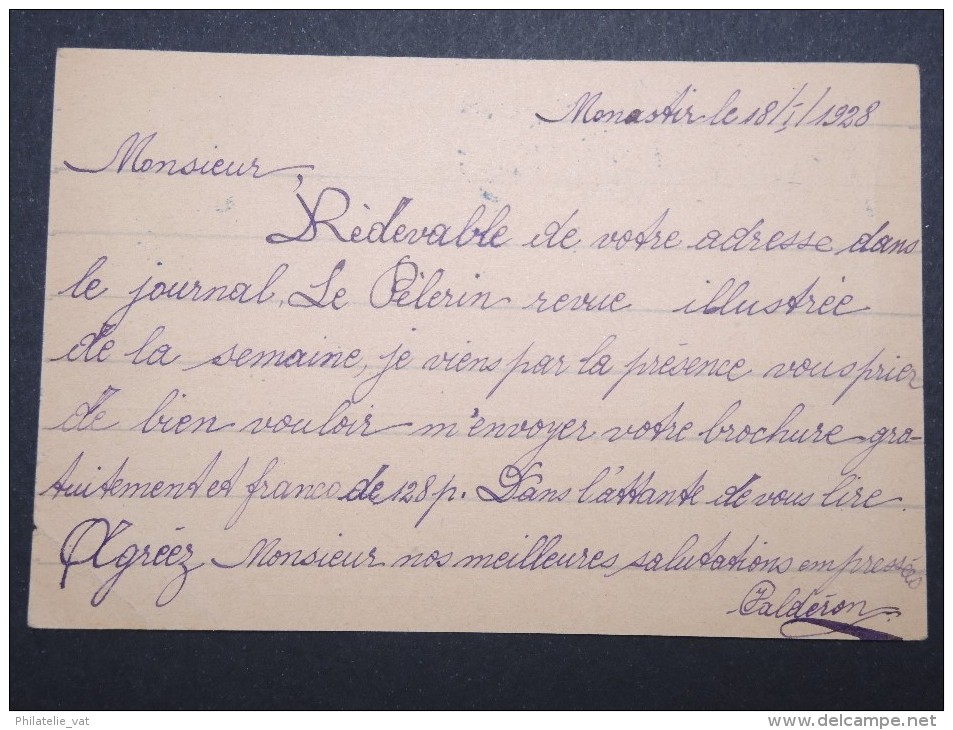 Monastir le 18/I/1928
Monsieur,
Rédevable de votre adresse dans
le journal, Le Pélerin revue illustrée
de la semaine, je viens par la présence vous prier
de bien vouloir m'envoyer votre brochure gra-
tuitement et franco de 128 p. Dans l'attante de vous lire.
Agréez Monsieur nos meilleures salutations empressées
Caldéron
Philatelie_vat
www.delcampe.net